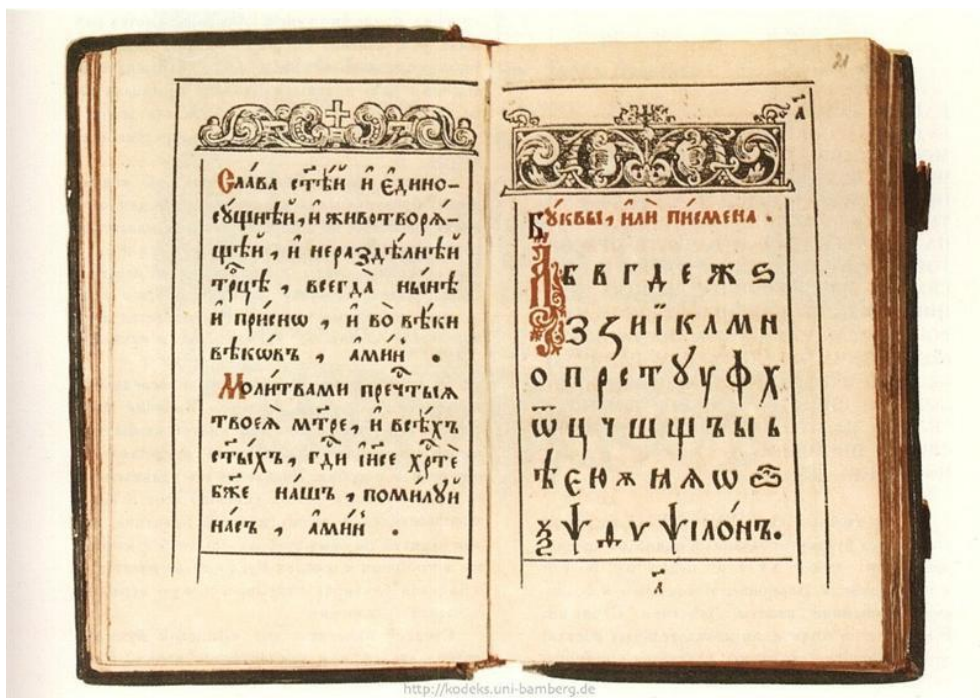 Сла́ва ст҃ѣ́й и҆ є҆дино-
сꙋ́щнѣй, и҆ животворѧ́-
щѣй, и҆ нераздѣ́лнѣй
трⷪ҇цѣ, всегда̀ нн҃ѣ
и҆ при́снѡ, и҆ во̀ вѣ́ки
вѣкѡ́въ, а҆ми́нь.
Моли́твами пречⷭ҇тыѧ
твоеѧ̀ мт҃ре, и҆ всѣ́хъ
ст҃ы́хъ, гдⷭ҇и і҆и҃се хрⷭ҇тѐ
бж҃е на́шъ, поми́лꙋй
на́съ, а҆ми́нь.
21
а҃
Бꙋ́квы, и҆лѝ пи́смена.
А б в г д е ж ѕ
з ꙁ и ї к л м н
о п р с т ꙋ у ф х
ѿ ц ч ш щ ъ ы ь
ѣ є ю ѫ ꙗ ѧ ѡ ѽ
ѯ ѱ ѳ ѵ ѱіло́нъ.
а҃
http://kodeks.uni-bamberg.de